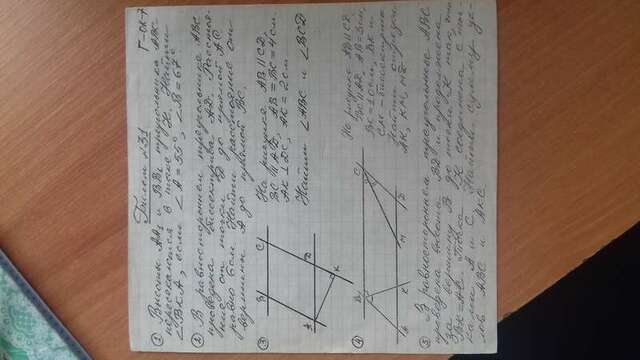 Билет №31
Г-ОК-7
① Высоты AA₁ и BB₁ треугольника ABC
пересекаются в точке K. Найти
∠BKA, если ∠A=55°, ∠B=67°
② В равностороннем треугольнике ABC
проведена биссектриса AD. Расстоя-
ние от точки D до прямой AC
равно 6см. Найти расстояние от
вершины A до прямой BC.
③
B C
A D
K
На рисунке AB||CD,
BC||AD, AB=BC=4см.
AK⊥DC, AK=2см
Найти ∠ABC и ∠BCD
④
B C
A K M D
На рисунке AB||CD,
BC||AD, AB=3см,
BC=10см, BK и
CM - биссектрисы
Найти отрезки
AK, KM, MD
⑤ В равностороннем треугольнике ABC
проведена высота BD и продолжена
за вершину B до точки K так, что
BK=AC. Точка K соединена с точ-
ками A и C. Найти сумму уг-
лов ABC и AKC